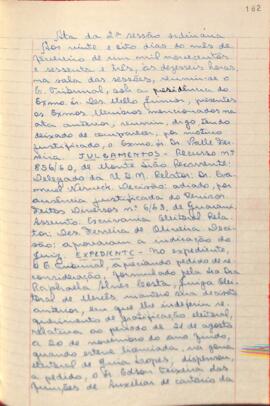 162
Ata da 2ª sessão ordinária
Aos vinte e oito dias do mês de
fevereiro de um mil novecentos
e sessenta e três, às dezesseis horas
na sala das sessões, reuniu-se o
E. Tribunal, sob a presidência do
Exmo. Sr. Des. Mello Junior, presentes
os Exmos. Membros mencionados na
ata anterior, menos, digo tendo
deixado de comparecer, por motivo
justificado, o Exmo. Sr. Dr. Valle
JULGAMENTOS - Recurso nº
856/60, de Monte Sião. Recorrente:
Delegado da U.D.N. Relator: Dr.
Decisão: adiado, por
ausência justificada do
Feitos Diversos nº 6/63, de
Assunto: Escrivania Eleitoral. Rela-
tor: Des. Ferreira de Oliveira. Deci-
são: aprovaram a indicação do
Juiz. EXPEDIENTE - No expediente,
o E. Tribunal, apreciando pedido de re-
consideração, formulado pela
Raphaella Alves Costa, Juíza Elei-
toral de manteve sua decisão
anterior, em que lhe indeferiu re-
querimento de gratificação eleitoral,
relativa ao período de 21 de agosto
a 20 de novembro do ano findo,
quando esteve licenciada, na zona
eleitoral de Guia Lopes; dispensou,
a pedido, o Sr. Edson Teixeira das
funções de Auxiliar de cartório da